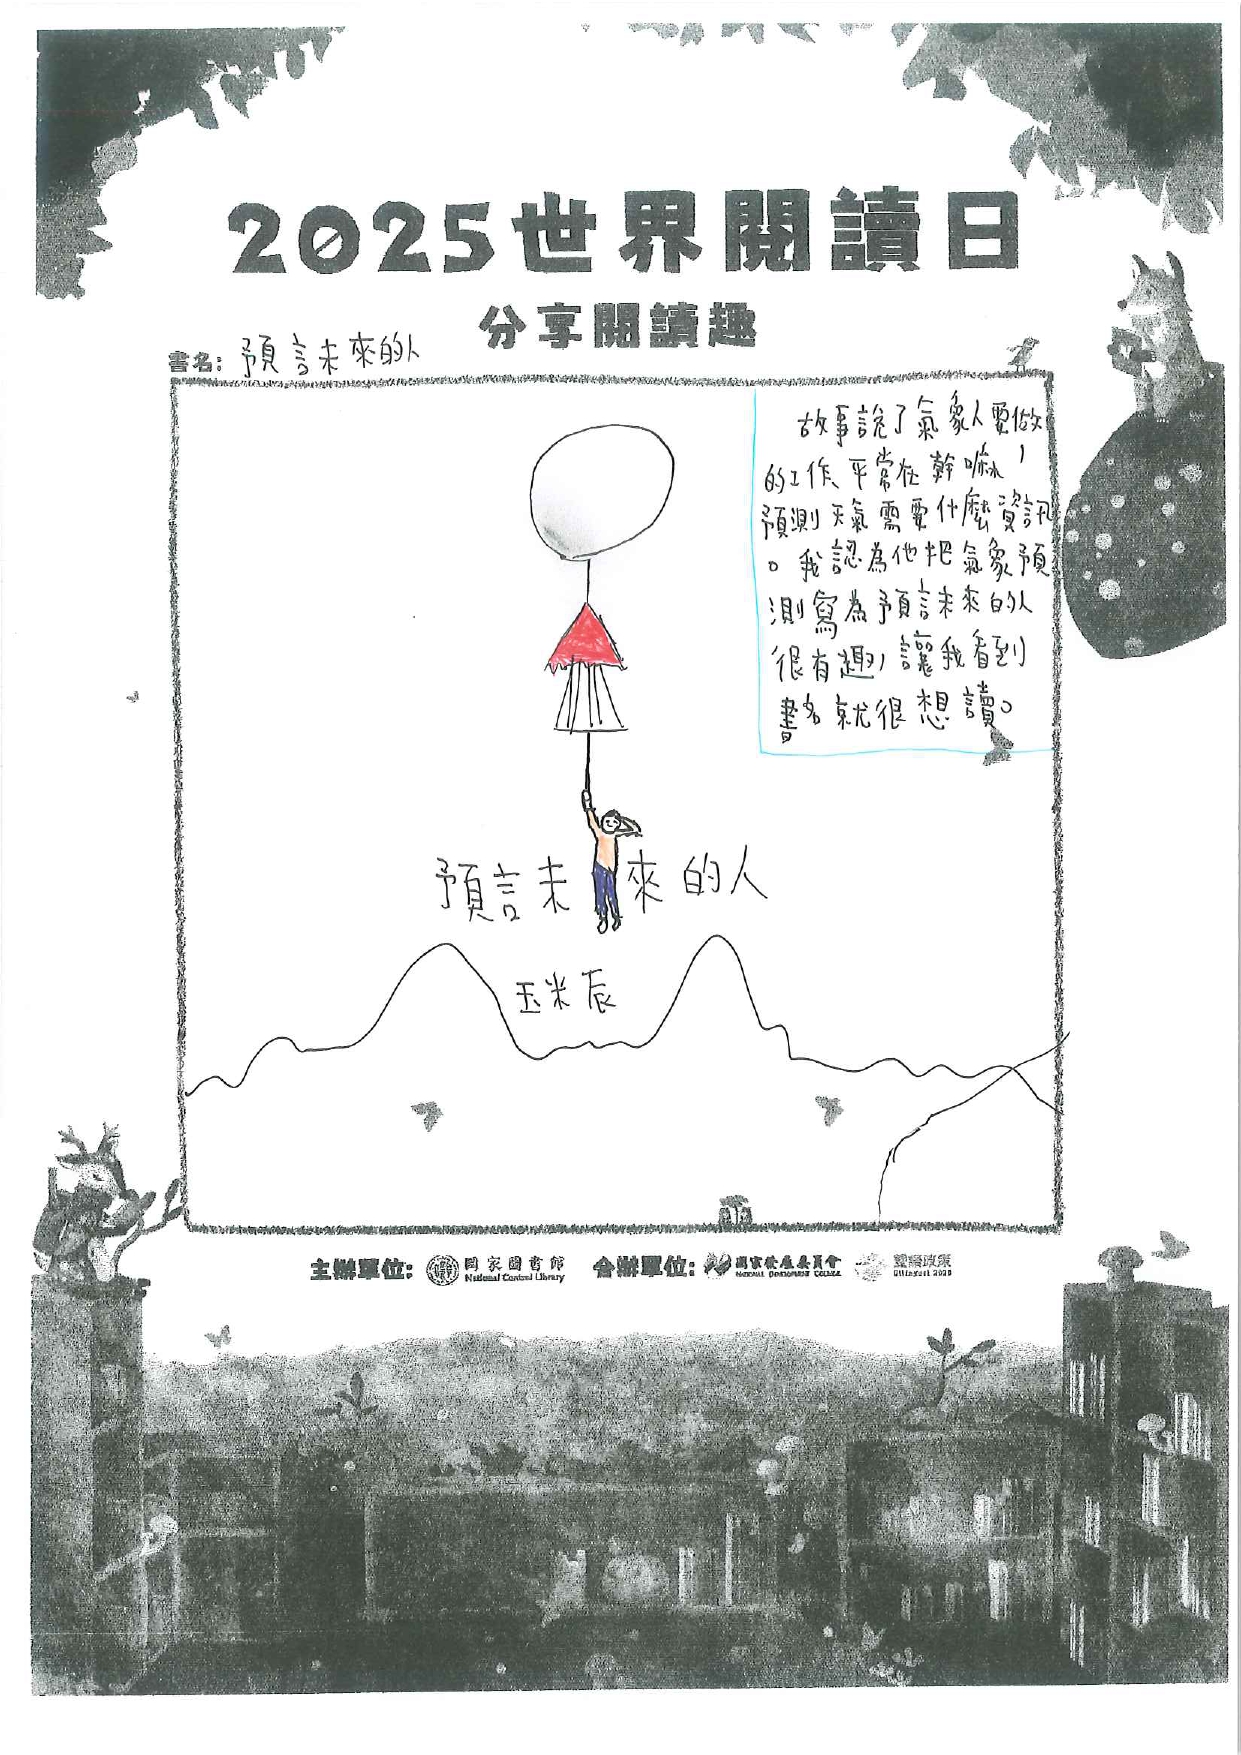 2025世界閱讀日
分享閱讀趣
書名: 預言未來的人
故事說了氣象人要做
的工作、平常在幹嘛,
預測天氣需要什麼資訊
。我認為他把氣象預
測寫為預言未來的人
很有趣,讓我看到
書名就很想讀。
預言未來的人
玉米辰
主辦單位: 國家圖書館 合辦單位: 國家發展委員會 雙語政策
National Central Library NATIONAL DEVELOPMENT COUNCIL Bilingual 2030